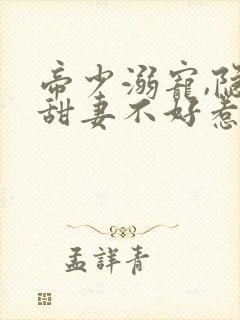 帝少溺寵,隐
甜妻不好惹
孟詳青